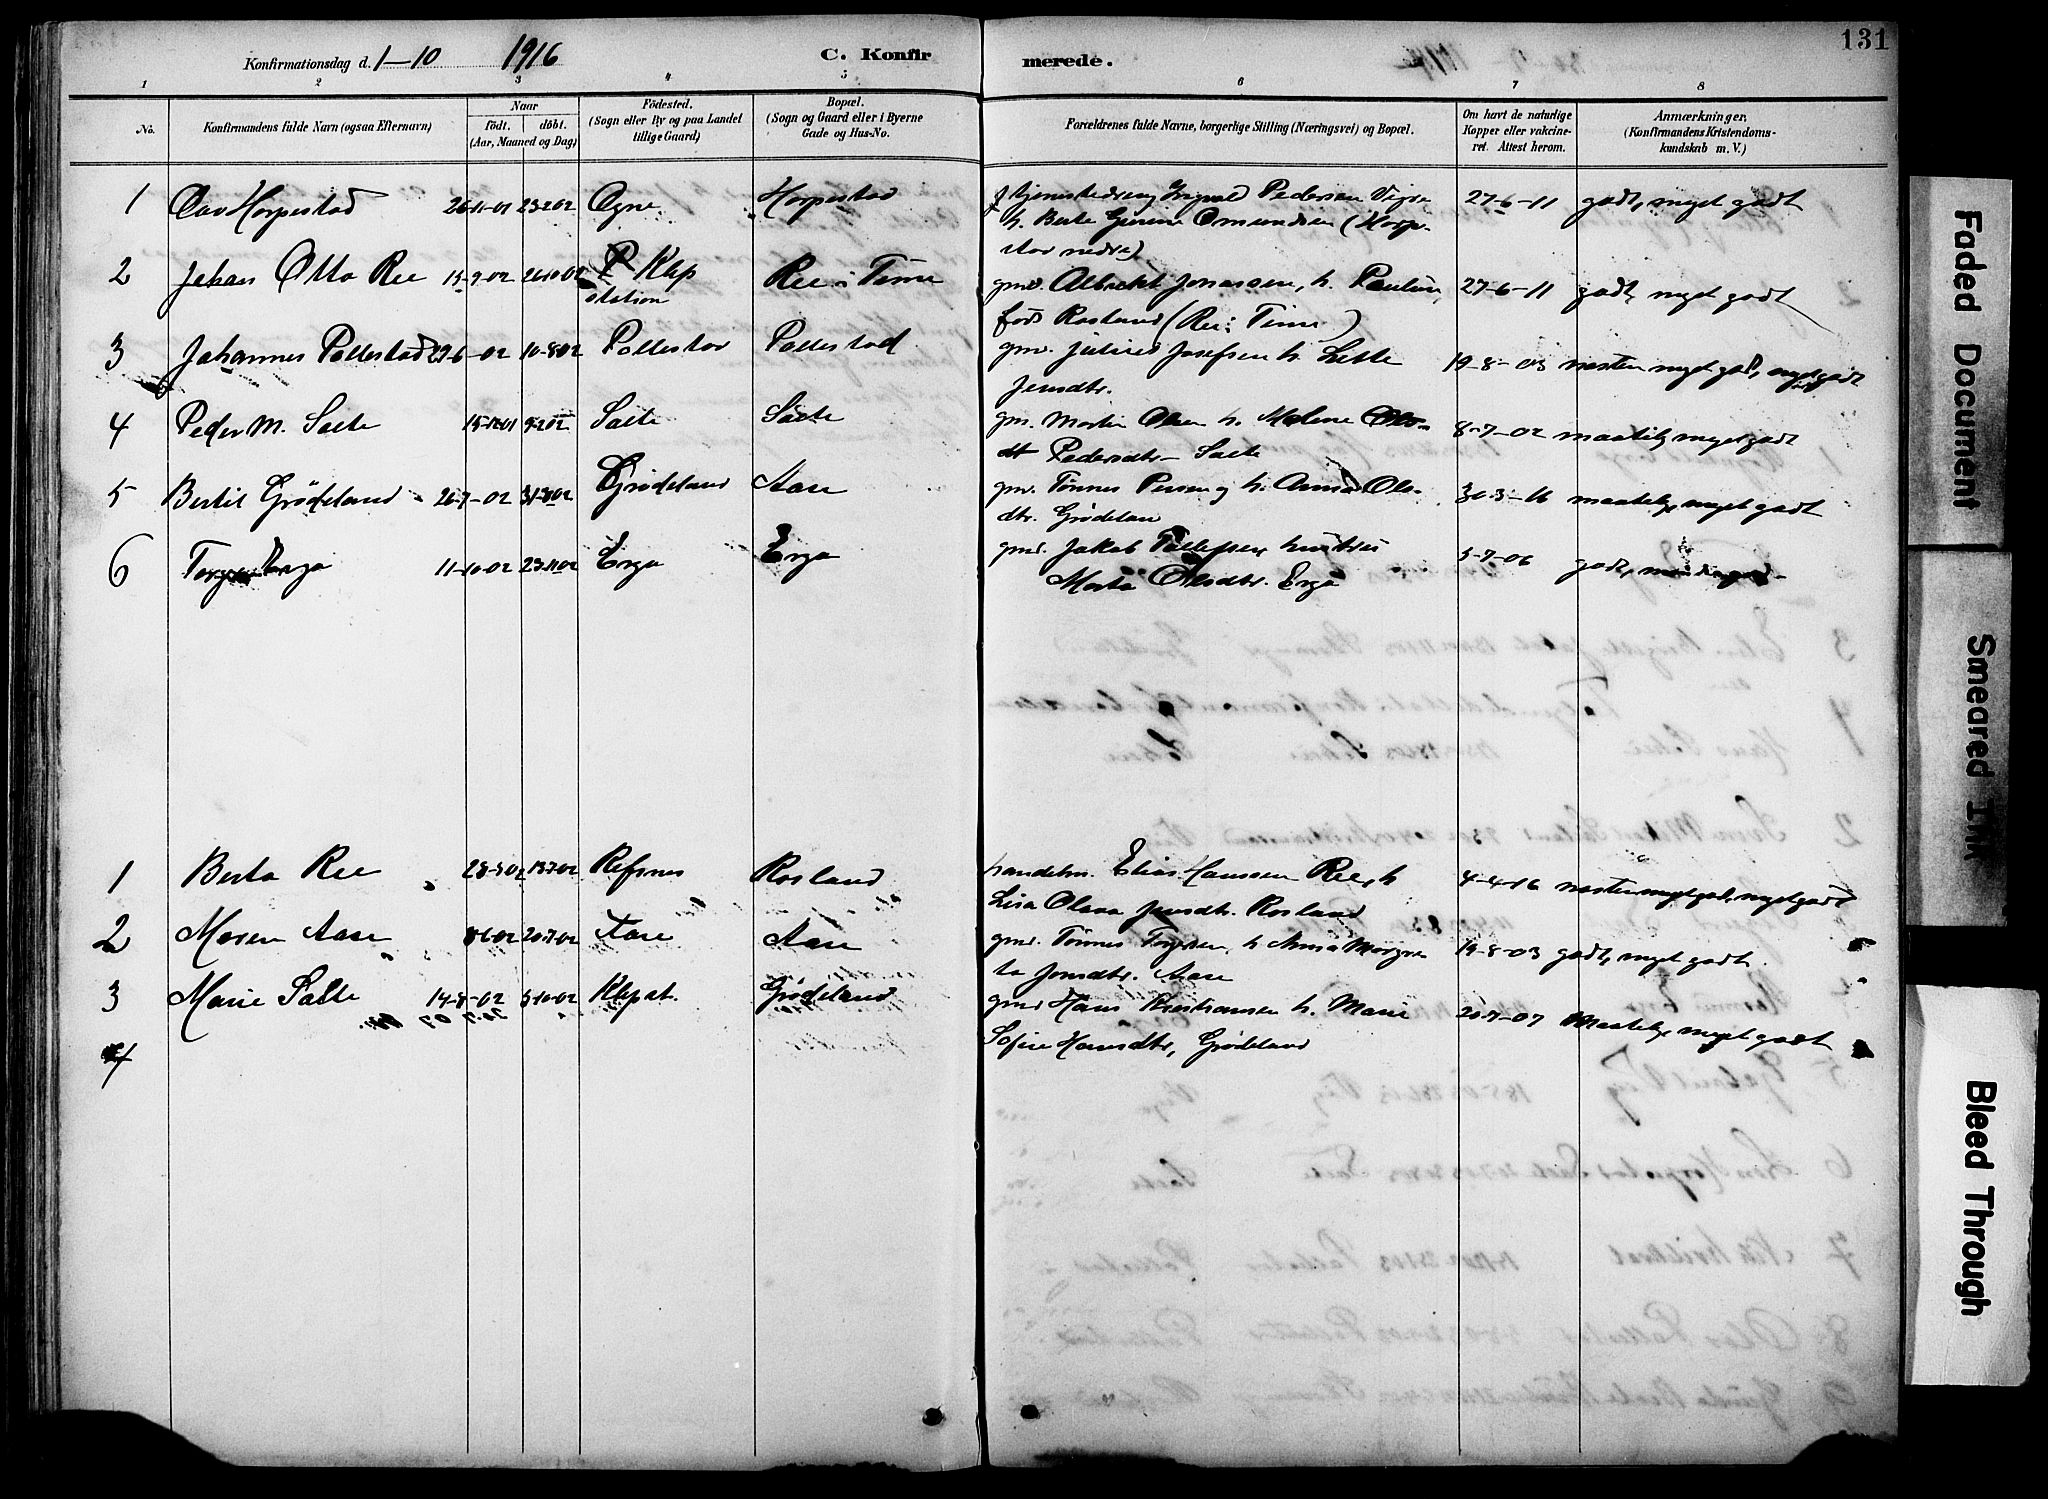 131
Konfirmationsdag d. 1-10 1916 C. Konfirmerede.
1 2 3 4 5 6 7 8
No. Konfirmandens fulde Navn (ogsaa Efternavn) Naar födt. döbt. (Aar, Maaned og Dag) Födested. (Sogn eller By og paa Landet tillige Gaard) Bopæl. (Sogn og Gaard eller i Byerne Gade og Hus-No. Forældrenes fulde Navne, borgerlige Stilling (Næringsvei) og Bopæl. Om havt de naturlige Kopper eller vakcineret. Attest herom. Anmærkninger. (Konfirmandens Kristendomskundskab m. V.)
1 Oav Horpestad 26-11-01 23-2-02 Ogne Horpestad Ingvald Pedersen Vigre 27-6-11 godt, meget godt
h. Berte Gurine Omundsen (Horpestad nedre)
2 Johan Otto Ree 15-9-02 26-10-02 Klep station Ree i Time gmd. Albrekt Jonassen, h. Pauline, 27-6-11 godt, meget godt
föd Rosland (Ree i Time)
3 Johannes Pollestad 29-6-02 10-8-02 Pollestad Pollestad gmd. Julius Josefsen h. Lette 19-8-03 næsten meget god, meget godt
Jensdtr.
4 Peder M. Salte 15-12-01 9-2-02 Salte Salte gm. Martin Olsen h. Malene 8-7-02 maatelig meget godt
Pedersdtr- Salte
5 Bertil Grödeland 26-7-02 31-8-02 Grödeland Aase gm. Tönnes Persen, h. Anna Olsdtr. Grödeland 30-3-16 maatelig, meget godt
6 Torger Erga 11-10-02 23-11-02 Erga Erga gmd. Jakob Tollefsen hustru 5-7-06 godt,
Marta Olsdtr. Erga
1 Berta Ree 28-5-02 13-7-02 Refsnes Rosland handelsm. Elias Hanssen Ree, h 4-4-16 næsten meget god, meget godt
Lisa Olava Jensdtr. Rosland
2 Maren Aase 8-6-02 20-7-02 Aase Aase gmd. Tönnes Torgersen, h Anna Margreta Jonsdtr. Aase 19-8-03 godt, meget godt
3 Marie Salte 14-8-02 5-10-02 Klep st. Grödeland gmd Hans Kristiansen h. Marie 20-7-07 Maatelig, meget godt
20-7 07
Sofie Hansdtr, Grödeland
4
Faded Document
Smeared Ink
Bleed Through